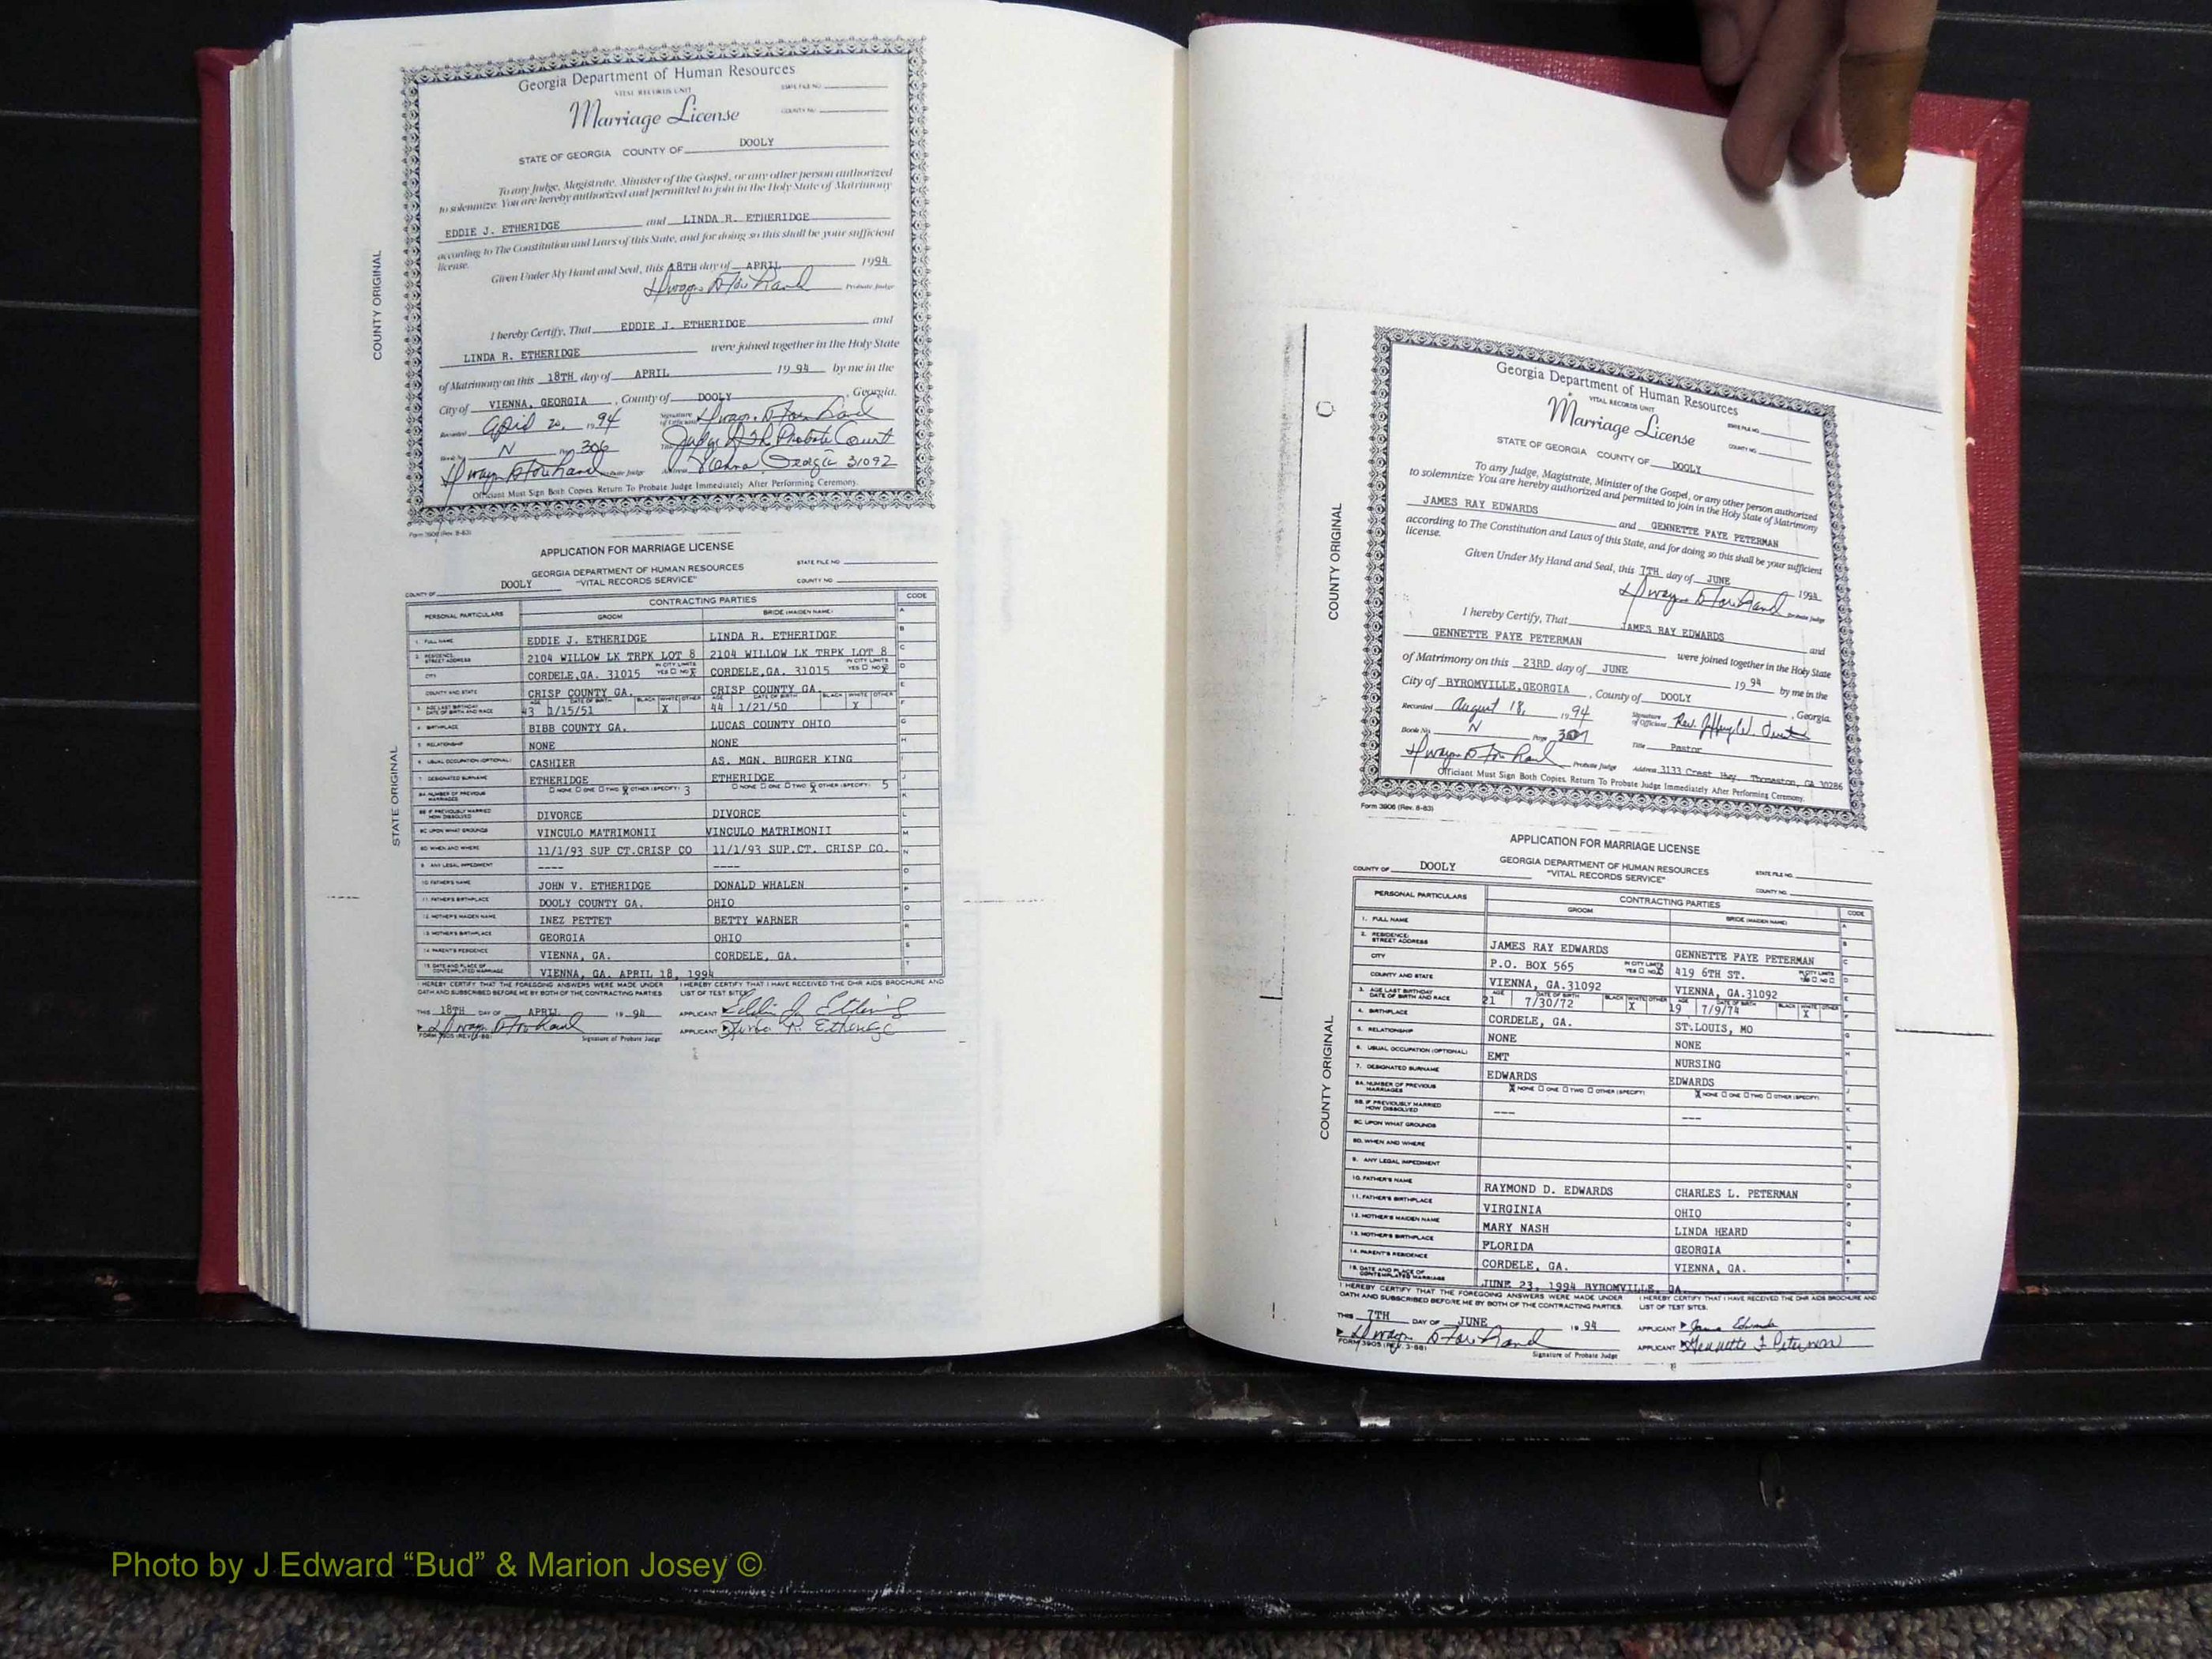 Georgia Department of Human Resources
VITAL RECORDS UNIT
STATE FILE NO.
Marriage License
COUNTY NO.
STATE OF GEORGIA COUNTY OF DOOLY
To any Judge, Magistrate, Minister of the Gospel, or any other person authorized
to solemnize: You are hereby authorized and permitted to join in the Holy State of Matrimony
EDDIE J. ETHERIDGE and LINDA R. ETHERIDGE
according to The Constitution and Laws of this State, and for doing so this shall be your sufficient
license.
Given Under My Hand and Seal, this 18TH day of APRIL 1994
Probate Judge
I hereby Certify, That EDDIE J. ETHERIDGE and
LINDA R. ETHERIDGE were joined together in the Holy State
of Matrimony on this 18TH day of APRIL 19 94 by me in the
City of VIENNA, GEORGIA, County of DOOLY, Georgia.
Recorded April 20, 1994 Signature of Officiant
Book No. N Page 306 Title Judge of The Probate Court
Probate Judge Address Vienna, Georgia 31092
Officiant Must Sign Both Copies. Return To Probate Judge Immediately After Performing Ceremony.
Form 3906 (Rev. 8-83)
COUNTY ORIGINAL
APPLICATION FOR MARRIAGE LICENSE
GEORGIA DEPARTMENT OF HUMAN RESOURCES STATE FILE NO.
COUNTY OF DOOLY "VITAL RECORDS SERVICE" COUNTY NO.
PERSONAL PARTICULARS CONTRACTING PARTIES CODE
GROOM BRIDE (MAIDEN NAME)
1. FULL NAME EDDIE J. ETHERIDGE LINDA R. ETHERIDGE
2. RESIDENCE: STREET ADDRESS 2104 WILLOW LK TRPK LOT 8 2104 WILLOW LK TRPK LOT 8
CITY CORDELE,GA. 31015 IN CITY LIMITS YES NO X CORDELE,GA. 31015 IN CITY LIMITS YES NO X
COUNTY AND STATE CRISP COUNTY GA. CRISP COUNTY GA.
3. AGE LAST BIRTHDAY DATE OF BIRTH AND RACE 43 1/15/51 X 44 1/21/50 X
4. BIRTHPLACE BIBB COUNTY GA. LUCAS COUNTY OHIO
5. RELATIONSHIP NONE NONE
6. USUAL OCCUPATION (OPTIONAL) CASHIER AS. MGN. BURGER KING
7. DESIGNATED SURNAME ETHERIDGE ETHERIDGE
8A. NUMBER OF PREVIOUS MARRIAGES NONE ONE TWO X OTHER (SPECIFY) 3 NONE ONE TWO X OTHER (SPECIFY) 5
8B. IF PREVIOUSLY MARRIED HOW DISSOLVED DIVORCE DIVORCE
8C. UPON WHAT GROUNDS VINCULO MATRIMONII VINCULO MATRIMONII
8D. WHEN AND WHERE 11/1/93 SUP CT.CRISP CO 11/1/93 SUP.CT. CRISP CO.
9. ANY LEGAL IMPEDIMENT ---- ----
10. FATHER'S NAME JOHN V. ETHERIDGE DONALD WHALEN
11. FATHER'S BIRTHPLACE DOOLY COUNTY GA. OHIO
12. MOTHER'S MAIDEN NAME INEZ PETTET BETTY WARNER
13. MOTHER'S BIRTHPLACE GEORGIA OHIO
14. PARENT'S RESIDENCE VIENNA, GA. CORDELE, GA.
15. DATE AND PLACE OF CONTEMPLATED MARRIAGE VIENNA, GA. APRIL 18, 1994
I HEREBY CERTIFY THAT THE FOREGOING ANSWERS WERE MADE UNDER I HEREBY CERTIFY THAT I HAVE RECEIVED THE DHR AIDS BROCHURE AND
OATH AND SUBSCRIBED BEFORE ME BY BOTH OF THE CONTRACTING PARTIES LIST OF TEST SITES.
THIS 18TH DAY OF APRIL 19 94 APPLICANT Eddie J. Etheridge
APPLICANT Linda R. Etheridge
FORM 3905 (REV. 3-88) Signature of Probate Judge
STATE ORIGINAL
Georgia Department of Human Resources
VITAL RECORDS UNIT
Marriage License STATE FILE NO.
COUNTY NO.
STATE OF GEORGIA COUNTY OF DOOLY
To any Judge, Magistrate, Minister of the Gospel, or any other person authorized
to solemnize: You are hereby authorized and permitted to join in the Holy State of Matrimony
JAMES RAY EDWARDS and GENNETTE FAYE PETERMAN
according to The Constitution and Laws of this State, and for doing so this shall be your sufficient
license.
Given Under My Hand and Seal, this 7TH day of JUNE 1994
Probate Judge
I hereby Certify, That JAMES RAY EDWARDS and
GENNETTE FAYE PETERMAN were joined together in the Holy State
of Matrimony on this 23RD day of JUNE 19 94 by me in the
City of BYROMVILLE,GEORGIA, County of DOOLY, Georgia.
Recorded August 18, 1994 Signature of Officiant Rev.
Book No. N Page 307 Title Pastor
Probate Judge Address 3133 Crest Hwy, Thomaston, GA 30286
Officiant Must Sign Both Copies. Return To Probate Judge Immediately After Performing Ceremony.
Form 3906 (Rev. 8-83)
COUNTY ORIGINAL
APPLICATION FOR MARRIAGE LICENSE
GEORGIA DEPARTMENT OF HUMAN RESOURCES STATE FILE NO.
COUNTY OF DOOLY "VITAL RECORDS SERVICE" COUNTY NO.
PERSONAL PARTICULARS CONTRACTING PARTIES CODE
GROOM BRIDE (MAIDEN NAME)
1. FULL NAME JAMES RAY EDWARDS GENNETTE FAYE PETERMAN
2. RESIDENCE: STREET ADDRESS P.O. BOX 565 419 6TH ST.
CITY VIENNA, GA.31092 VIENNA, GA.31092
COUNTY AND STATE
3. AGE LAST BIRTHDAY DATE OF BIRTH AND RACE 21 7/30/72 X 19 7/9/74 X
4. BIRTHPLACE CORDELE, GA. ST.LOUIS, MO
5. RELATIONSHIP NONE NONE
6. USUAL OCCUPATION (OPTIONAL) EMT NURSING
7. DESIGNATED SURNAME EDWARDS EDWARDS
8A. NUMBER OF PREVIOUS MARRIAGES X NONE ONE TWO OTHER (SPECIFY) X NONE ONE TWO OTHER (SPECIFY)
8B. IF PREVIOUSLY MARRIED HOW DISSOLVED --- ---
8C. UPON WHAT GROUNDS
8D. WHEN AND WHERE
9. ANY LEGAL IMPEDIMENT
10. FATHER'S NAME RAYMOND D. EDWARDS CHARLES L. PETERMAN
11. FATHER'S BIRTHPLACE VIRGINIA OHIO
12. MOTHER'S MAIDEN NAME MARY NASH LINDA HEARD
13. MOTHER'S BIRTHPLACE FLORIDA GEORGIA
14. PARENT'S RESIDENCE CORDELE, GA. VIENNA, GA.
15. DATE AND PLACE OF CONTEMPLATED MARRIAGE JUNE 23, 1994 BYROMVILLE, GA.
I HEREBY CERTIFY THAT THE FOREGOING ANSWERS WERE MADE UNDER I HEREBY CERTIFY THAT I HAVE RECEIVED THE DHR AIDS BROCHURE AND
OATH AND SUBSCRIBED BEFORE ME BY BOTH OF THE CONTRACTING PARTIES. LIST OF TEST SITES.
THIS 7TH DAY OF JUNE 19 94 APPLICANT James Edwards
APPLICANT Gennette F Peterman
FORM 3905 (REV. 3-88) Signature of Probate Judge
COUNTY ORIGINAL
Photo by J Edward “Bud” & Marion Josey ©